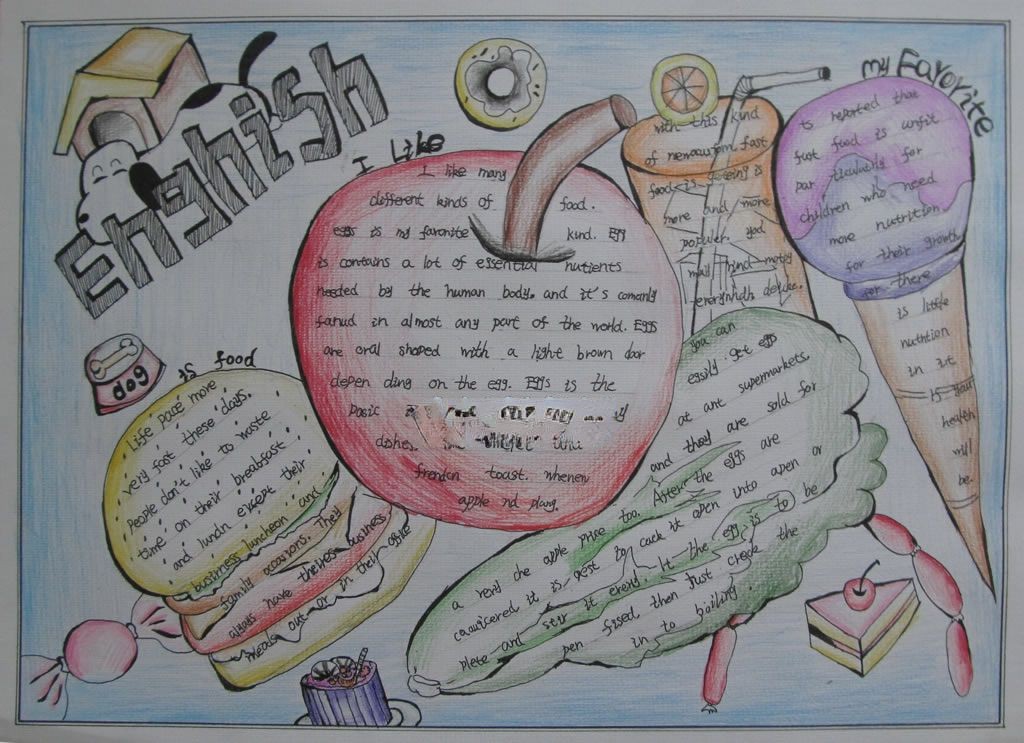 English
dog
I Like
I like many
different kinds of food.
eggs is my faronte kind. Egg
is contains a lot of essential nutients
needed by the human body. and it's comenly
fanud in almost any part of the world. Eggs
are oral shaped with a light brown door
depen ding on the egg. Eggs is the
dishes.
frendon toast. whenen
apple nd plang.
is food
Life pace more
very fost these days.
People don't like to waste
time on their breakfast
and lundn except their
business luncheon and
family occasions. They
always have theiness business
meals out or in their office
with this kind
of newcustom, fast
food is
more and more
populer. you
my Favorite
ts reported that
fust food is unfit
par ticulauily for
children who need
more nutrition
for their growth
for there
is little
nuthtion
in it
is your
health
will
be.
you can
easily get eggs
at ant supermarkets.
and they are sold for
a reny che apple price too. After the eggs are
cauuicered it is gest to cack it apen unto apen or
plete and stir it ereniy. It the egg is to be
pen fised then just crack the
in to bailing.